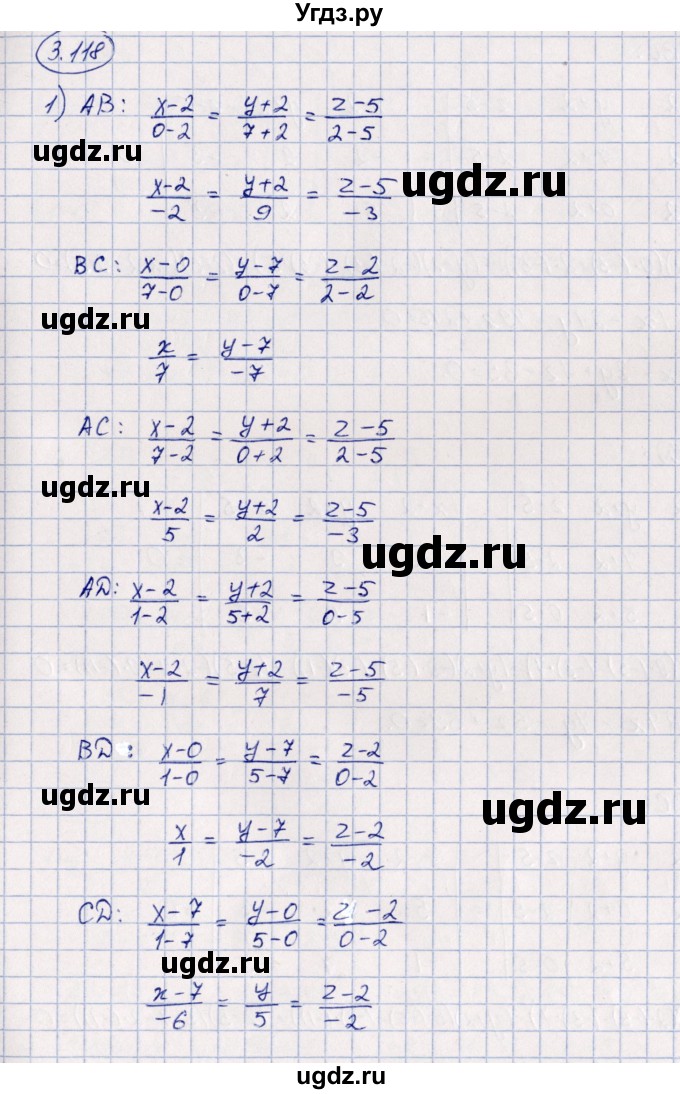 Угдз.ру
3.118
1) AB: (x-2)/(0-2) = (y+2)/(7+2) = (z-5)/(2-5)
ugdz.ru
(x-2)/(-2) = (y+2)/9 = (z-5)/(-3)
ugdz.ru
BC: (x-0)/(7-0) = (y-7)/(0-7) = (z-2)/(2-2)
ugdz.ru
x/7 = (y-7)/(-7)
AC: (x-2)/(7-2) = (y+2)/(0+2) = (z-5)/(2-5)
ugdz.ru
(x-2)/5 = (y+2)/2 = (z-5)/(-3)
ugdz.ru
AD: (x-2)/(1-2) = (y+2)/(5+2) = (z-5)/(0-5)
(x-2)/(-1) = (y+2)/7 = (z-5)/(-5)
BD: (x-0)/(1-0) = (y-7)/(5-7) = (z-2)/(0-2)
ugdz.ru
ugdz.ru
x/1 = (y-7)/(-2) = (z-2)/(-2)
CD: (x-7)/(1-7) = (y-0)/(5-0) = (z-2)/(0-2)
ugdz.ru
(x-7)/(-6) = y/5 = (z-2)/(-2)
ugdz.ru